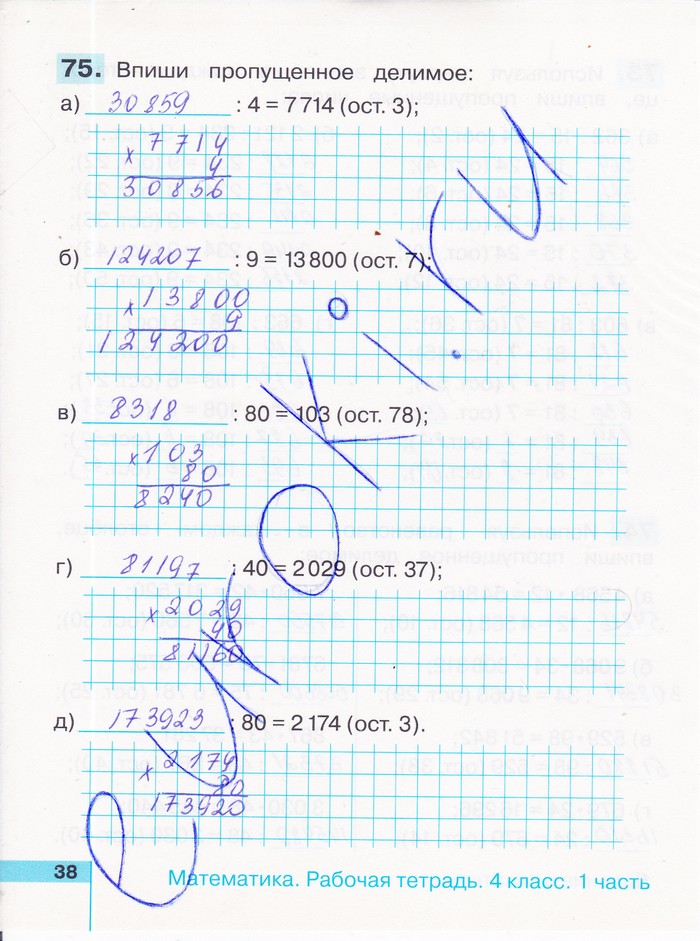 75. Впиши пропущенное делимое:
а) 30859 : 4 = 7 714 (ост. 3);
7714
× 4
30856
б) 124207 : 9 = 13 800 (ост. 7);
× 13800
9
124200
в) 8318 : 80 = 103 (ост. 78);
× 103
80
8240
г) 81197 : 40 = 2 029 (ост. 37);
× 2029
40
81160
д) 173923 : 80 = 2 174 (ост. 3).
× 2174
80
173920
38
Математика. Рабочая тетрадь. 4 класс. 1 часть